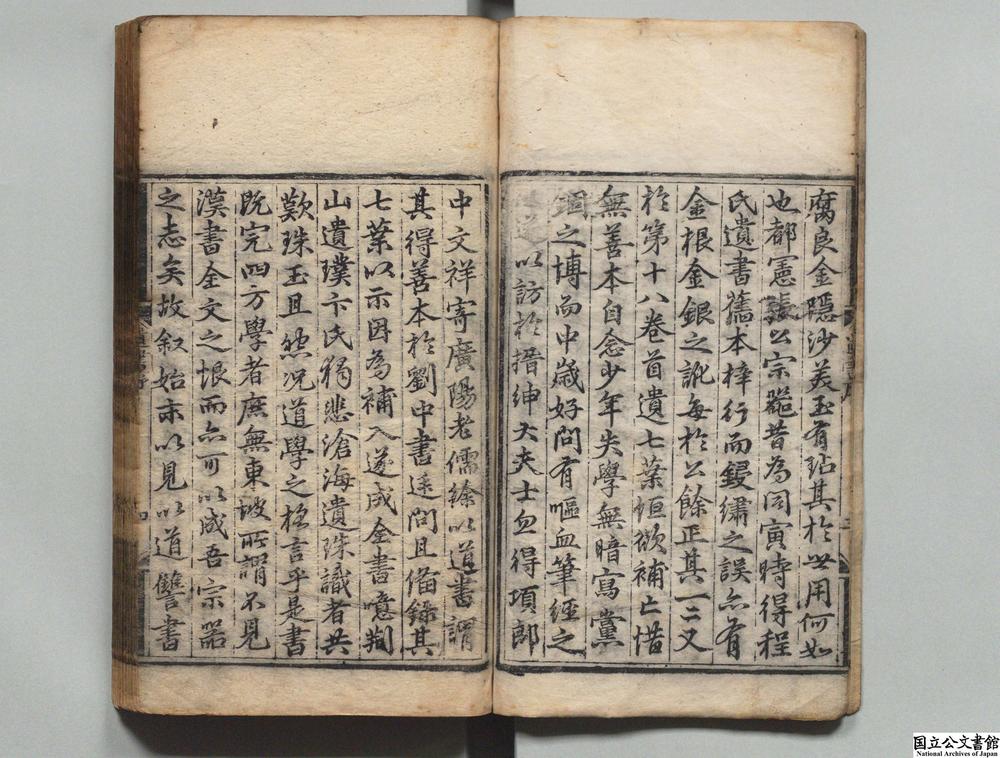 腐良金隱沙美玉有玷其於世用何如
也都憲張公宗器昔為同寅時得程
氏遺書舊本梓行而鋟繡之誤亦有
金根金銀之訛每於公餘正其一二又
於第十八卷首遺七葉恒欲補亡惜
無善本自念少年失學無暗寫黨
錮之博而中歲好問有嘔血筆經之
以訪於搢紳大夫士血得項郎
中文祥寄廣陽老儒綸以道書謂
其得善本於劉中書遂問且備錄其
七葉以示因為補入遂成全書噫荆
山遺璞卞氏猶悲滄海遺珠識者共
歎珠玉且然况道學之格言乎是書
既完四方學者庶無東坡所謂不見
漢書全文之恨而亦可以成吾宗器
之志矣故叙始末以見以道讐書
国立公文書館
National Archives of Japan